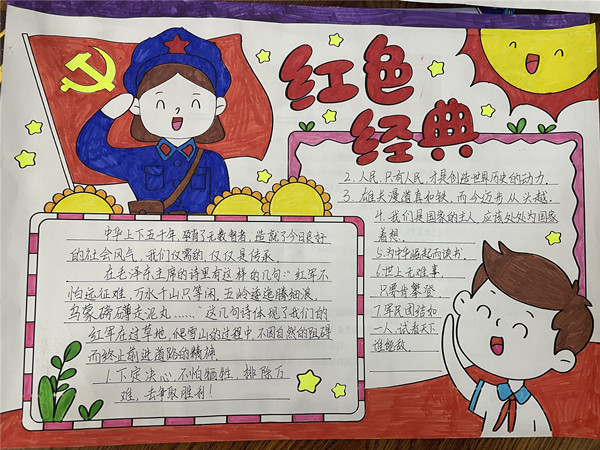 红色
经典
中华上下五千年,孕育了无数智者,造就了今日良好
的社会风气,我们仅需的,仅仅是传承。
在毛泽东主席的诗里有这样的几句:“红军不
怕远征难,万水千山只等闲,五岭逶迤腾细浪,
乌蒙磅礴走泥丸……”这几句诗体现了我们的
红军在过草地,爬雪山的过程中,不因自然的阻碍
而终止前进道路的精神
1.下定决心,不怕牺牲,排除万
难,去争取胜利!
2.人民,只有人民,才是创造世界历史的动力.
3.雄关漫道真如铁,而今迈步从头越.
4.我们是国家的主人,应该处处为国家
着想.
5.为中华崛起而读书.
6.世上无难事,
只要肯攀登.
7.军民团结如
一人,试看天下
谁能敌.